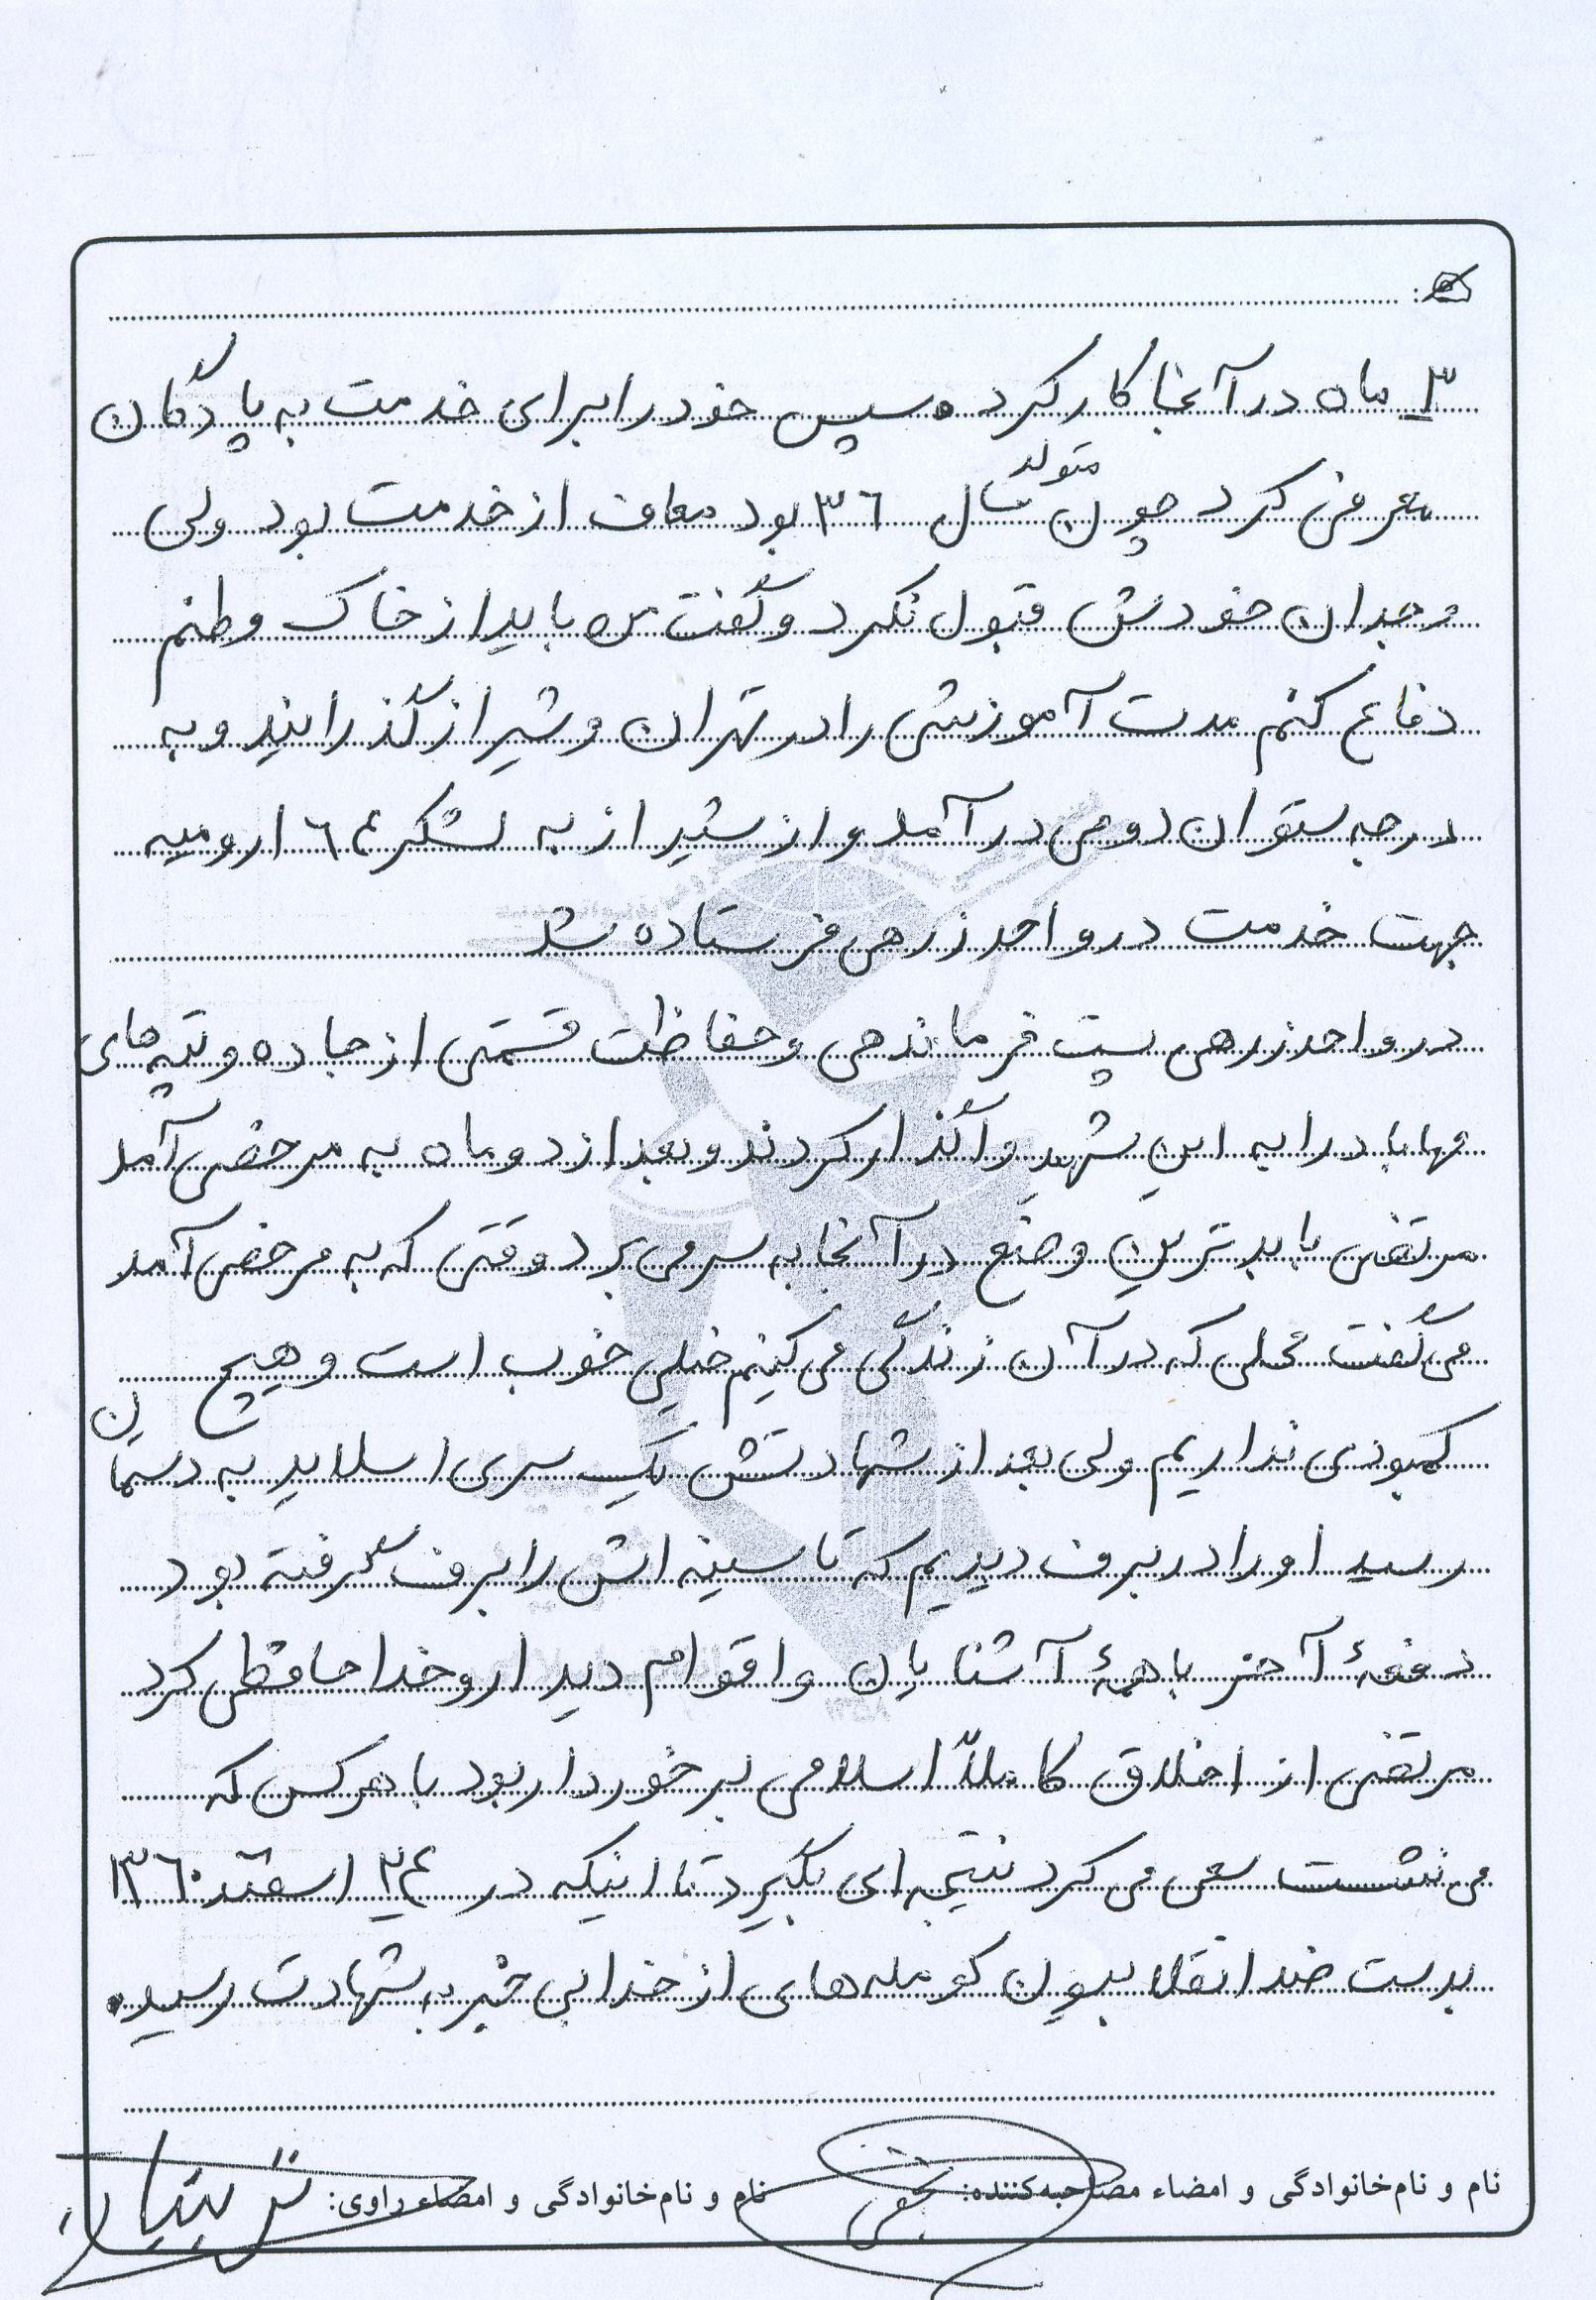 ۳ ماه در آنجا کار کرد. سپس خود را برای خدمت به پادگان
معرفی کرد چون متولد سال ۳۶ بود معاف از خدمت بود ولی
وجدان خودش قبول نکرد و گفت من باید از خاک وطنم
دفاع کنم مدت آموزشی را در تهران و شیراز گذرانید و به
درجه ستوان دومی در آمد و از شیراز به لشکر ۶۴ ارومیه
جهت خدمت در واحد زرهی فرستاده شد
در واحد زرهی پست فرماندهی و حفاظت قسمتی از جاده و تپه‌های
مهاباد را به این شهید واگذار کردند و بعد از دو ماه به مرخصی آمد
مرتضی با بدترین وضع در آنجا به سر می برد وقتی که به مرخصی آمد
می گفت محلی که در آن زندگی می کنیم خیلی خوب است و هیچ
کمبودی نداریم ولی بعد از شهادتش یک سری اسلاید به دستمان
رسید او را در برف دیدیم که تا سینه اش را برف گرفته بود
دفعهٔ آخر با همهٔ آشنایان و اقوام دیدار و خداحافظی کرد
مرتضی از اخلاق کاملاً اسلامی برخوردار بود با هر کس که
می نشست سعی می کرد نتیجه ای بگیرد تا اینکه در ۲۴ اسفند ۱۳۶۰
بدست ضد انقلابیون کومله‌های از خدا بی خبر به شهادت رسید.
نام و نام‌خانوادگی و امضاء مصاحبه‌کننده: نام و نام‌خانوادگی و امضاء راوی: